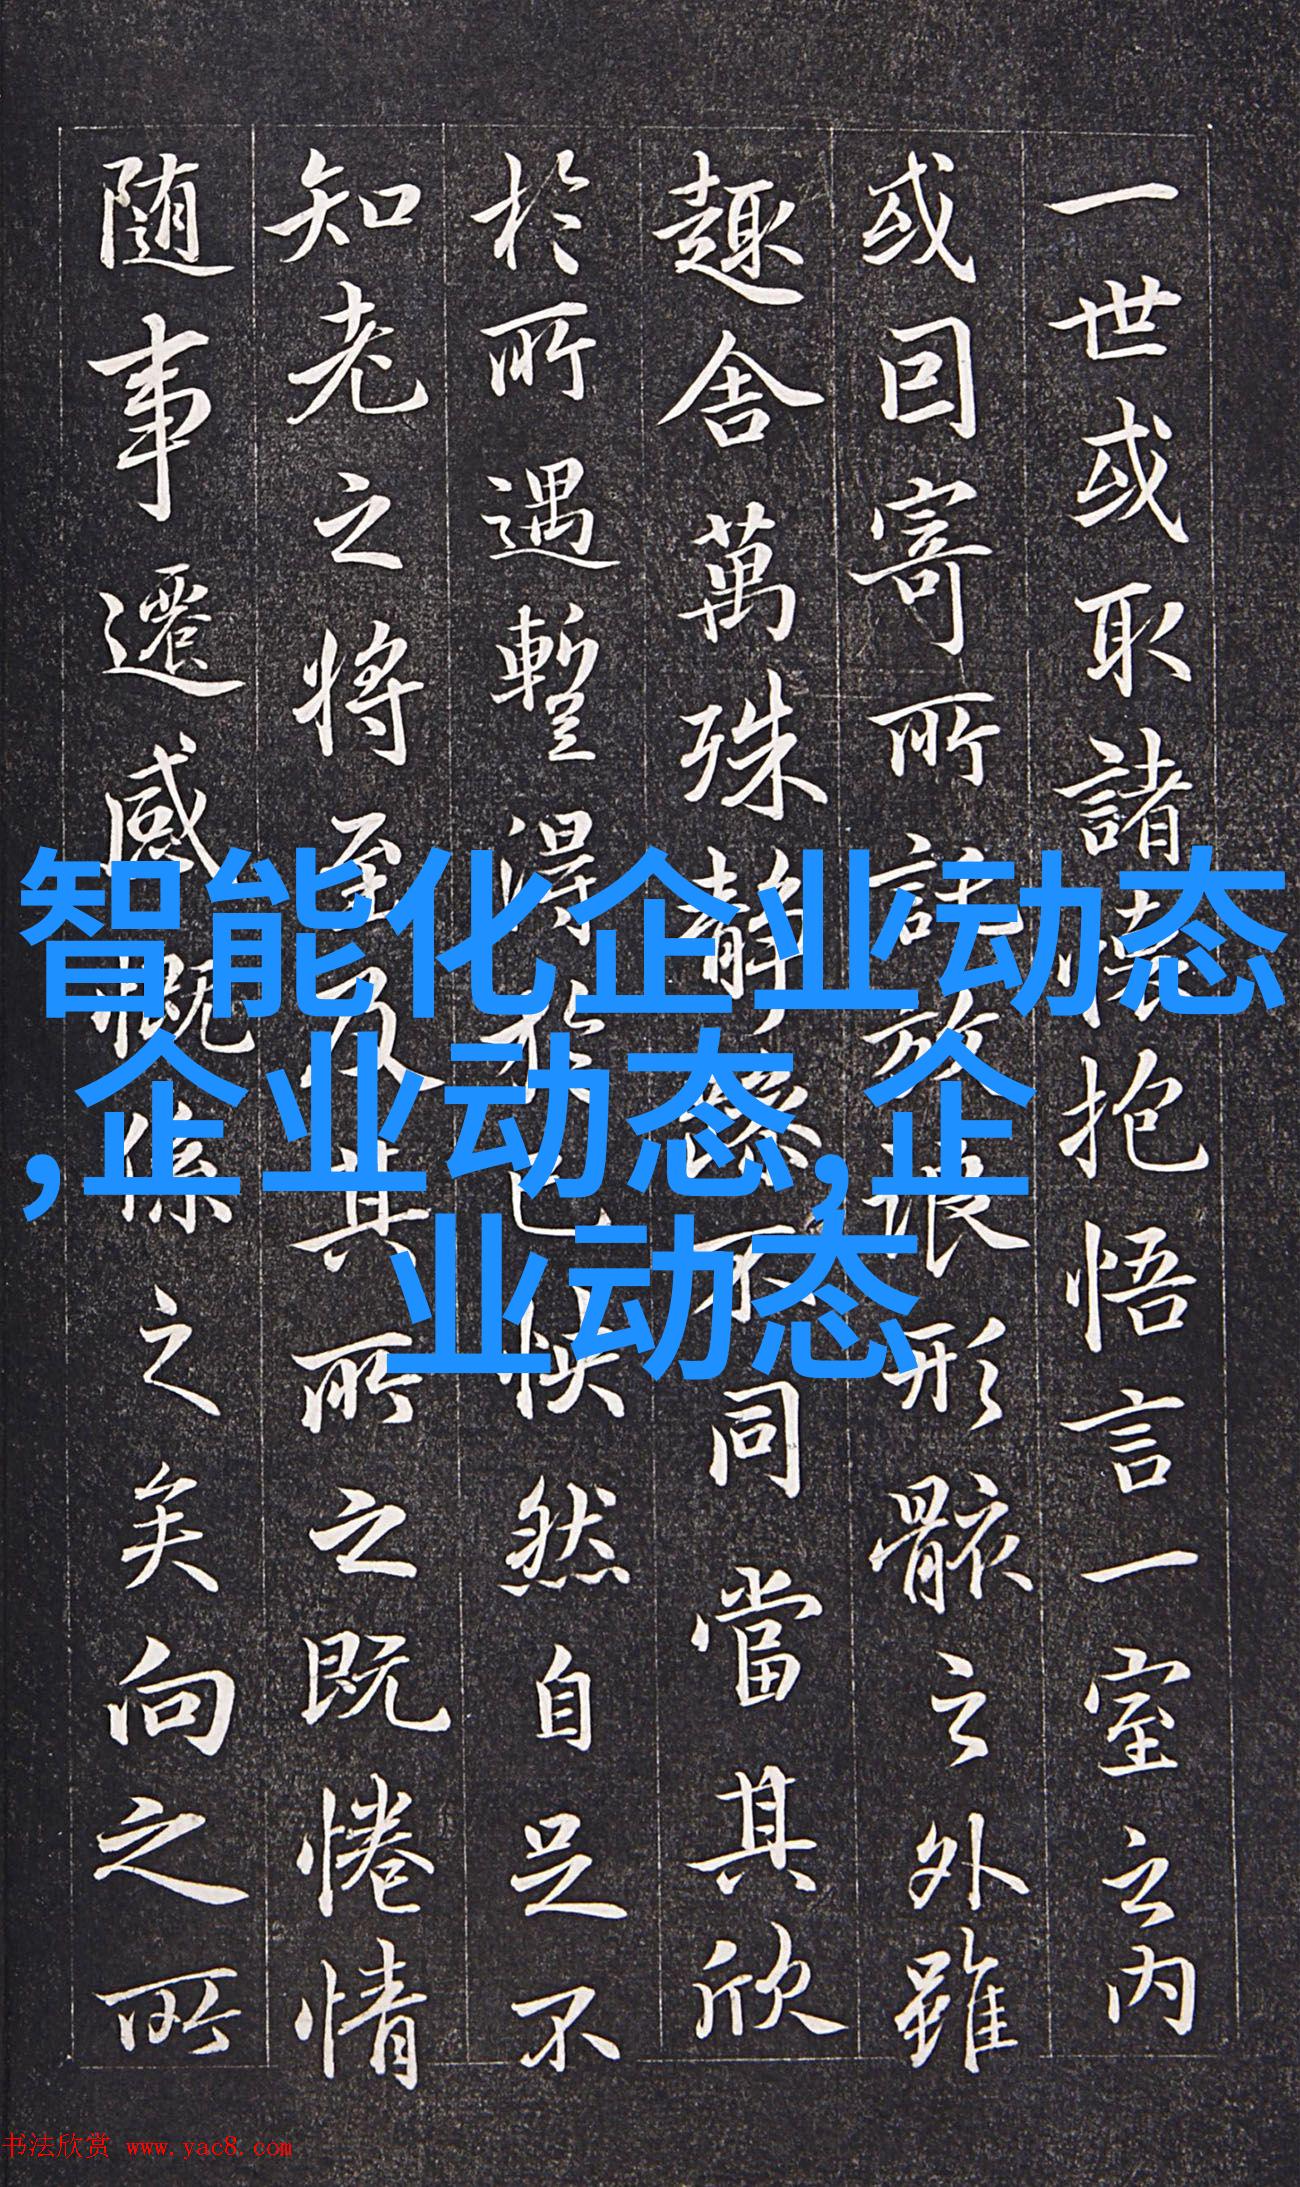 一世或取諸懷抱悟言一室之内
或囙寄所託放浪形骸之外雖
趣舍萬殊靜躁不同當其欣
於所遇暫得於己怏然自足不
知老之將至及其所之既惓情
随事遷感慨係之矣向之所
智能化企业动态
,企业动态,企
业动态
书法欣赏 www.yac8.com